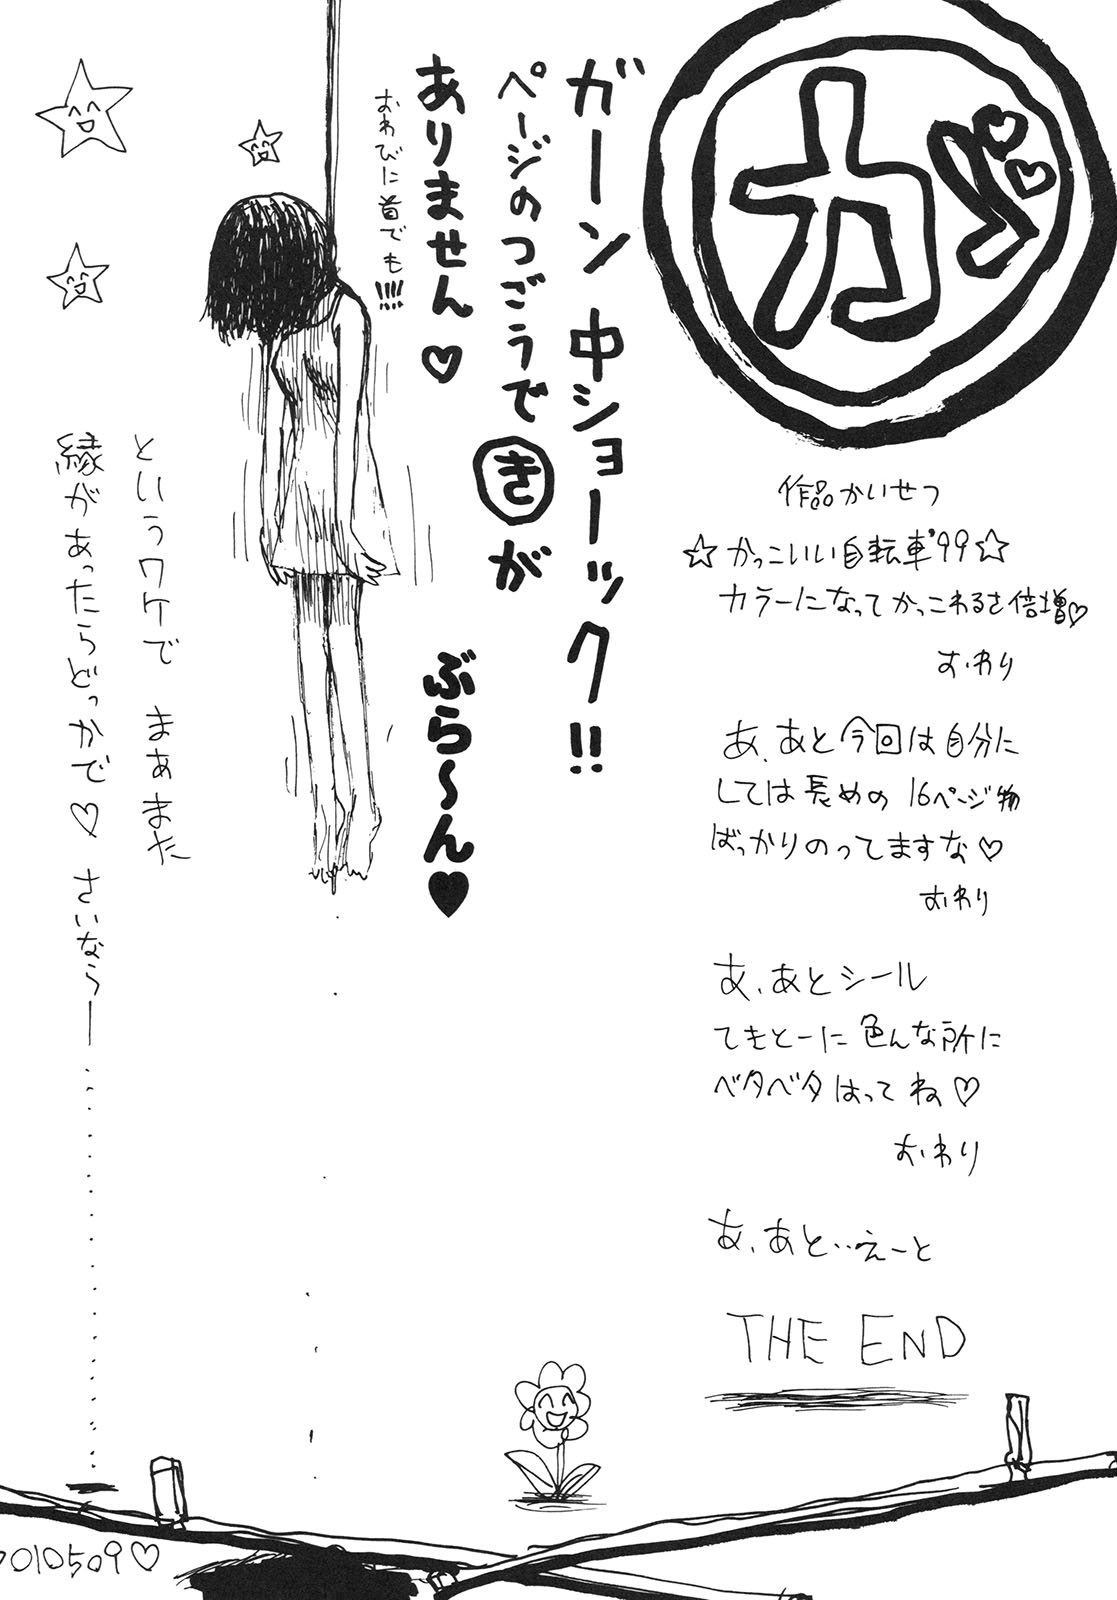 が
作品かいせつ
☆かっこいい自転車'99☆
カラーになってかっこわるさ倍増♡
おわり
あ、あと今回は自分に
しては長めの16ページ物
ばっかりのってますな♡
おわり
あ、あとシール
てきとーに色んな所に
ベタベタはってね♡
おわり
あ、あと‥えーと
THE END
ガーン中ショーック!!
ページのつごうできが
ありません♡
おわびに首でも!!!!
ぶら〜ん♥
というワケで まあまた
縁があったらどっかで♡ さいならー
010509♡